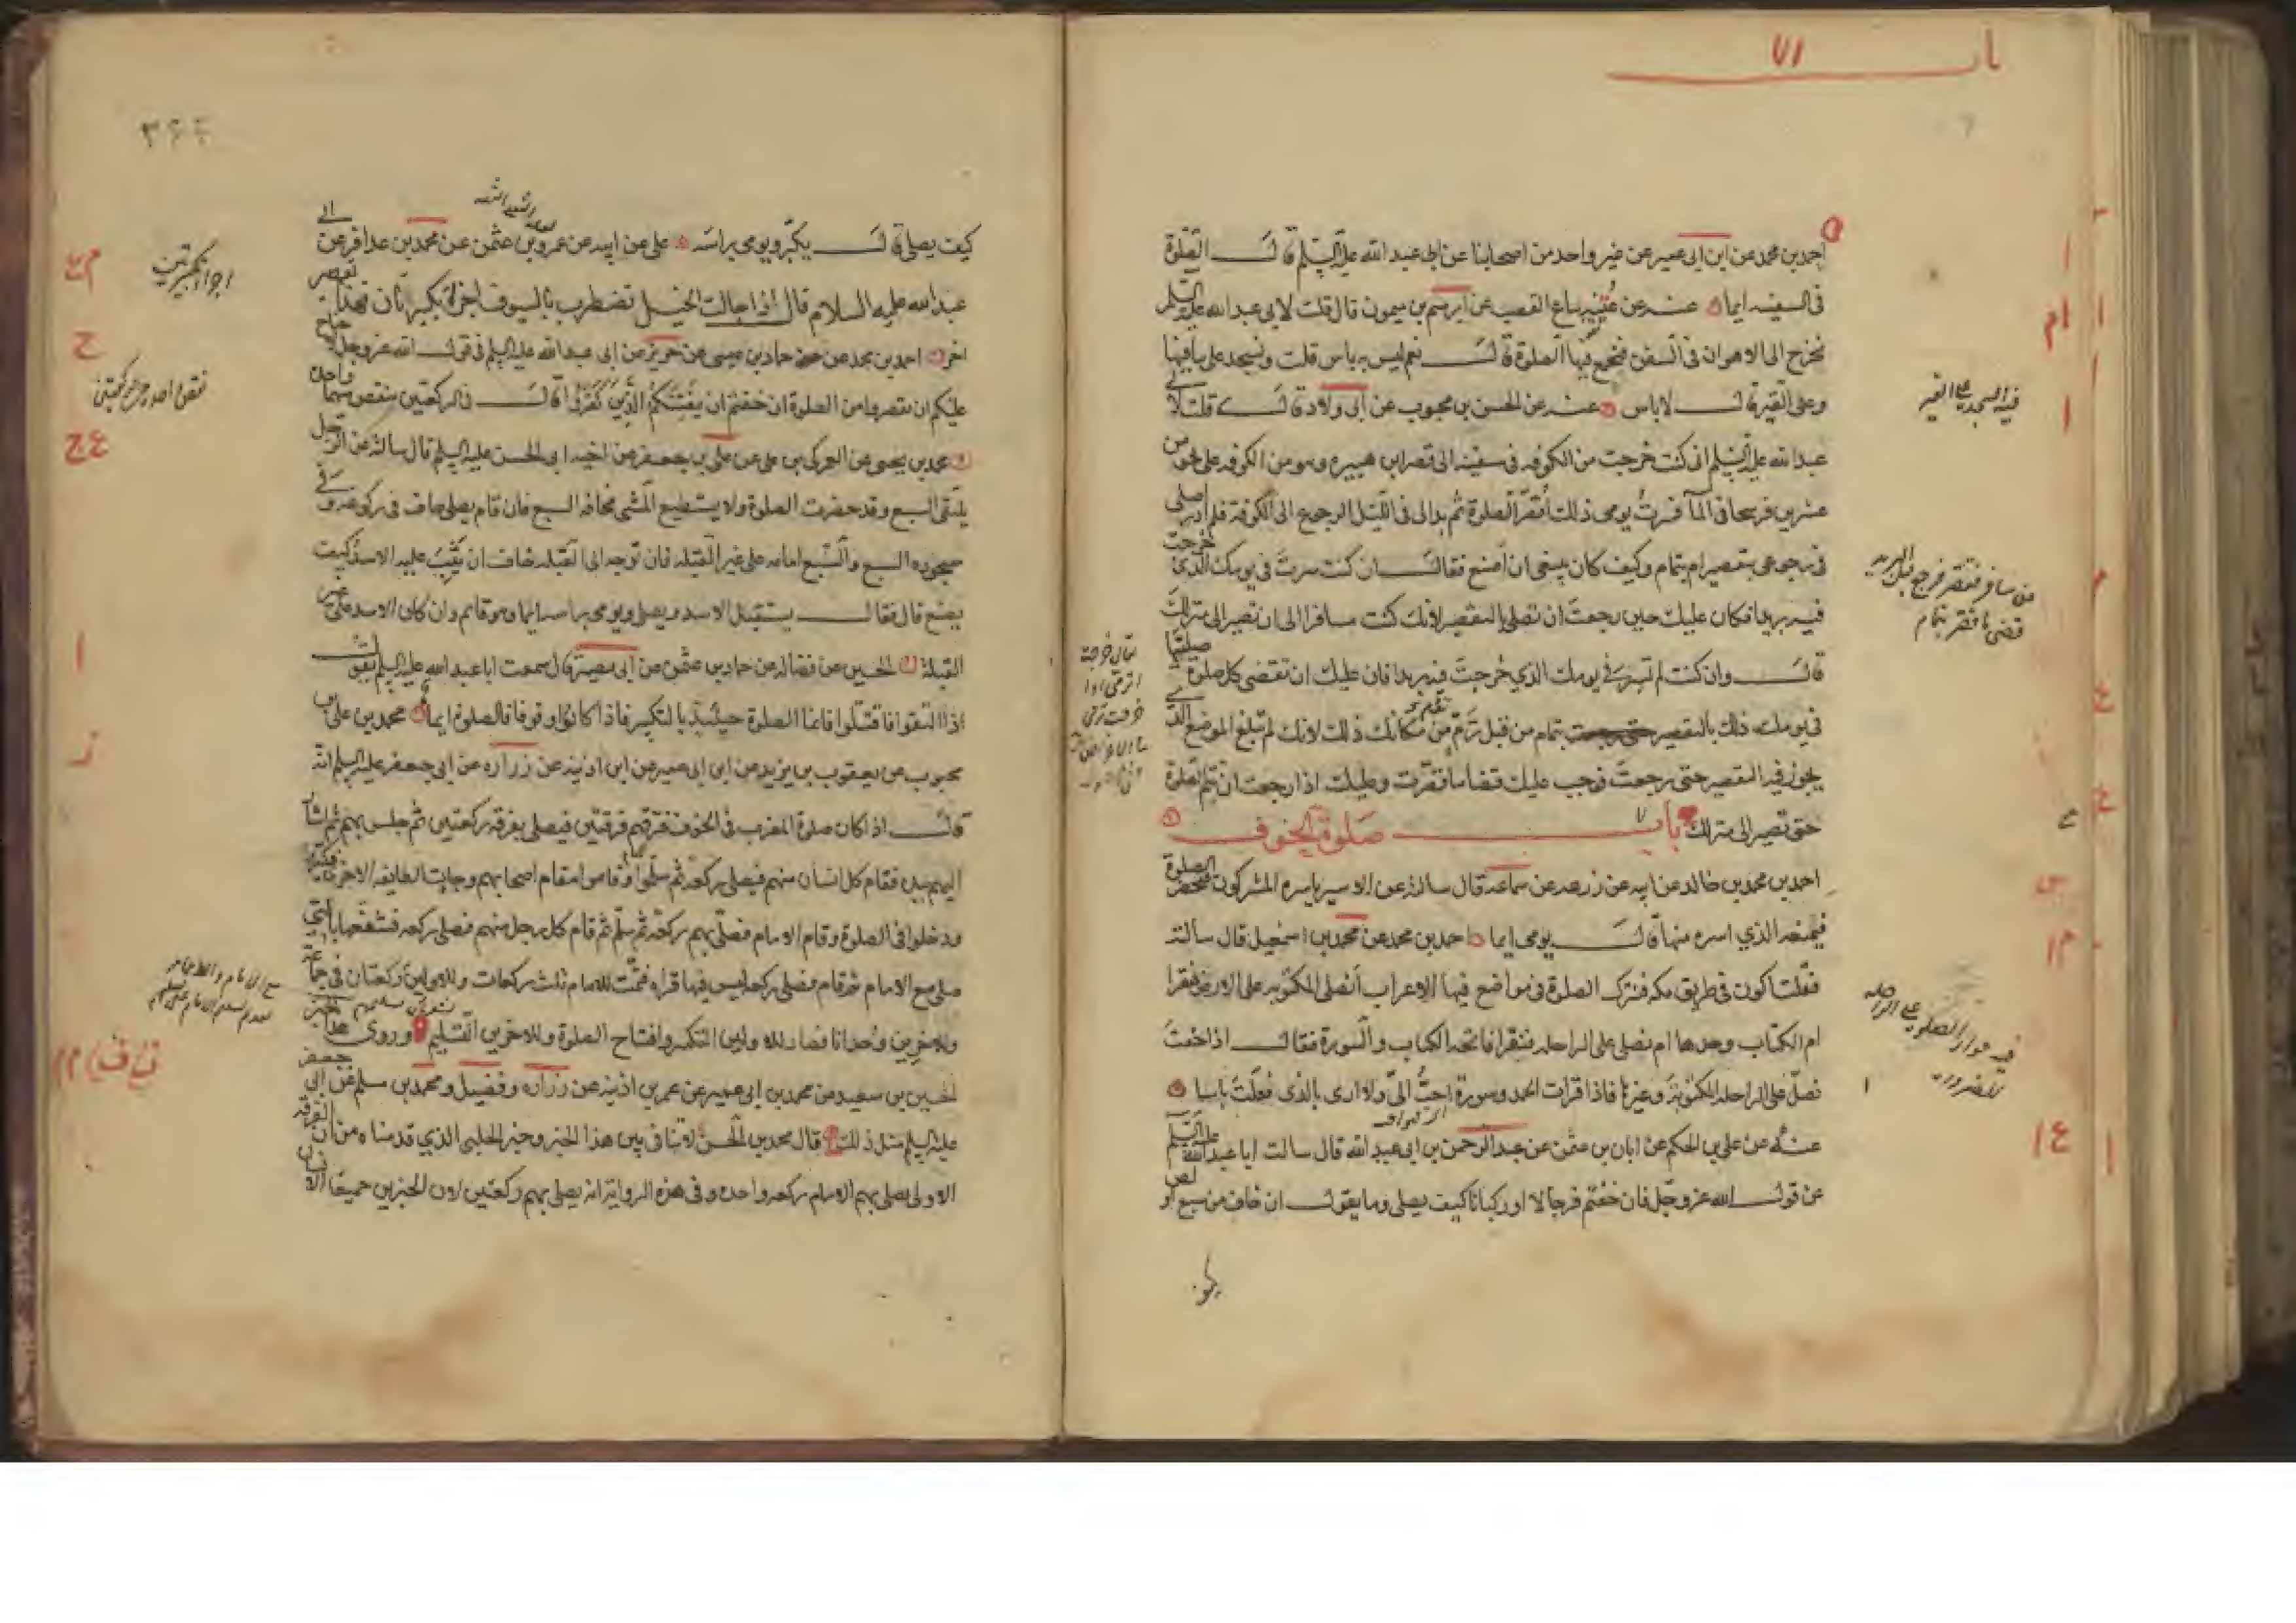 باب ٧١
احمد بن محمد عن ابن ابى عمير عن غير واحد من اصحابنا عن ابى عبد الله عليه السلم قال الصلوة
فى السفينه ايماء عنه عن عيينه بياع القصب عن ابرهيم بن ميمون قال قلت لابى عبد الله عليه السلم
نخرج الى الاهواز فى السفن فنجمع فيها الصلوة قال نعم ليس به باس قلت ونسجد على ما فيها
وعلى القير قال لا باس عنه عن الحسن بن محبوب عن ابى ولاد قال قلت لابى
عبد الله عليه السلم انى كنت خرجت من الكوفه فى سفينه الى قصر ابن هبيره وهو من الكوفه على نحو من
عشرين فرسخا فى الماء فسرت يومى ذلك اقصر الصلوة ثم بدا لى فى الليل الرجوع الى الكوفة فلم ادر اصلى
فى رجوعى بتقصير ام بتمام وكيف كان ينبغى ان اصنع فقال ان كنت سرت فى يومك الذى خرجت
فيه بريدا فكان عليك حين رجعت ان تصلى بالتقصير لانك كنت مسافرا الى ان تصير الى منزلك
قال وان كنت لم تسر فى يومك الذى خرجت فيه بريدا فان عليك ان تقضى كل صلوة صليتها
فى يومك ذلك بالتقصير بتمام من قبل تريم من مكانك ذلك لانك لم تبلغ الموضع الذى
يجوز فيه التقصير حتى رجعت فوجب عليك قضا ما قصرت وعليك اذا رجعت ان تتم الصلوة
حتى تصير الى منزلك باب صلوة الخوف
احمد بن محمد بن خالد عن ابيه عن زرعه عن سماعه قال سالته عن الاسير ياسره المشركون فتحضر الصلوة
فيمنعه الذى اسره منها قال يومى ايماء احمد بن محمد عن محمد بن اسمعيل قال سالته
فقلت اكون فى طريق مكه فننزل الصلوة فى مواضع فيها الاعراب انصلى المكتوبه على الارض فنقرا
ام الكتاب وحدها ام نصلى على الراحله فنقرا فاتحه الكتاب والسورة فقال اذا خفت
فصل على الراحله المكتوبة وغيرها فاذا قرات الحمد وسورة احب الى ولا ارى بالذى فعلت باسا
عنه عن على بن الحكم عن ابان بن عثمن عن عبد الرحمن بن ابى عبد الله قال سالت ابا عبد الله عليه السلم
عن قول الله عز وجل فان خفتم فرجالا او ركبانا كيف يصلى وما يقول ان خاف من سبع او لص
كيف يصلى قال يكبر ويومى براسه على عن ابيه عن عمرو بن عثمن عن محمد بن عذافر عن ابى
عبد الله عليه السلام قال اذا جالت الخيل تضطرب بالسيوف اجزاه تكبيرتان فهذا تقصير
اخر احمد بن محمد عن حماد بن عيسى عن حريز عن ابى عبد الله عليه السلم فى قول الله عز وجل فليس عليكم جناح
عليكم ان تقصروا من الصلوة ان خفتم ان يفتنكم الذين كفروا قال فى الركعتين ينقص منهما واحدة
محمد بن يحيى عن العمركى بن على عن على بن جعفر عن اخيه ابى الحسن عليه السلم قال سالته عن الرجل
يلتقى السبع وقد حضرت الصلوة ولا يستطيع المشى مخافة السبع فان قام يصلى خاف فى ركوعه وفى
سجوده السبع والسبع امامه على غير القبله فان توجه الى القبله خاف ان يثب عليه الاسد كيف
يصنع قال فقال يستقبل الاسد ويصلى ويومى براسه ايما وهو قائم وان كان الاسد على غير
القبلة الحسين عن فضاله عن حماد بن عثمن عن ابى بصير قال سمعت ابا عبد الله عليه السلم يقول
اذا التقوا فاقتتلوا فانما الصلوة حينئذ بالتكبير فاذا كانوا وقوفا فالصلوة ايماء محمد بن على بن
محبوب عن يعقوب بن يزيد عن ابن ابى عمير عن ابن اذينه عن زراره عن ابى جعفر عليه السلم انه
قال اذا كان صلوة المغرب فى الخوف فرقهم فرقتين فيصلى بفرقه ركعتين ثم جلس بهم ثم اشار
اليهم بيده فقام كل انسان منهم فيصلى ركعه ثم سلموا وقاموا مقام اصحابهم وجاءت الطايفه الاخرى فكبروا
ودخلوا فى الصلوة وقام الامام فصلى بهم ركعة ثم سلم ثم قام كل رجل منهم فصلى ركعه فشفعها بالتى
صلى مع الامام ثم قام فصلى ركعه ليس فيها قراه فتمت للامام ثلث ركعات وللاولين ركعتان فى جماعة
وللاخرين وحدانا فصار للاولين التكبير وافتتاح الصلوة وللاخرين التسليم وروى هذا الخبر
الحسين بن سعيد عن محمد بن ابى عمير عن عمر بن اذينه عن زراره وفضيل ومحمد بن مسلم عن ابى جعفر
عليه السلم مثل ذلك قال محمد بن الحسن لا تنافى بين هذا الخبر وخبر الحلبى الذى قدمناه من ان الفرقة
الاولى يصلى بهم الامام ركعه واحده وفى هذه الرواية انه يصلى بهم ركعتين لان الخبرين جميعا